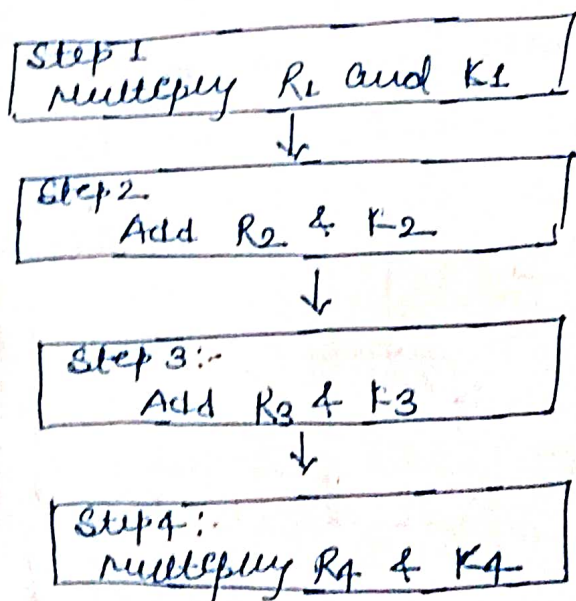 Step 1
Multiply R1 and K1
Step 2
Add R2 & K2
Step 3:-
Add R3 & K3
Step 4:-
Multiply R4 & K4